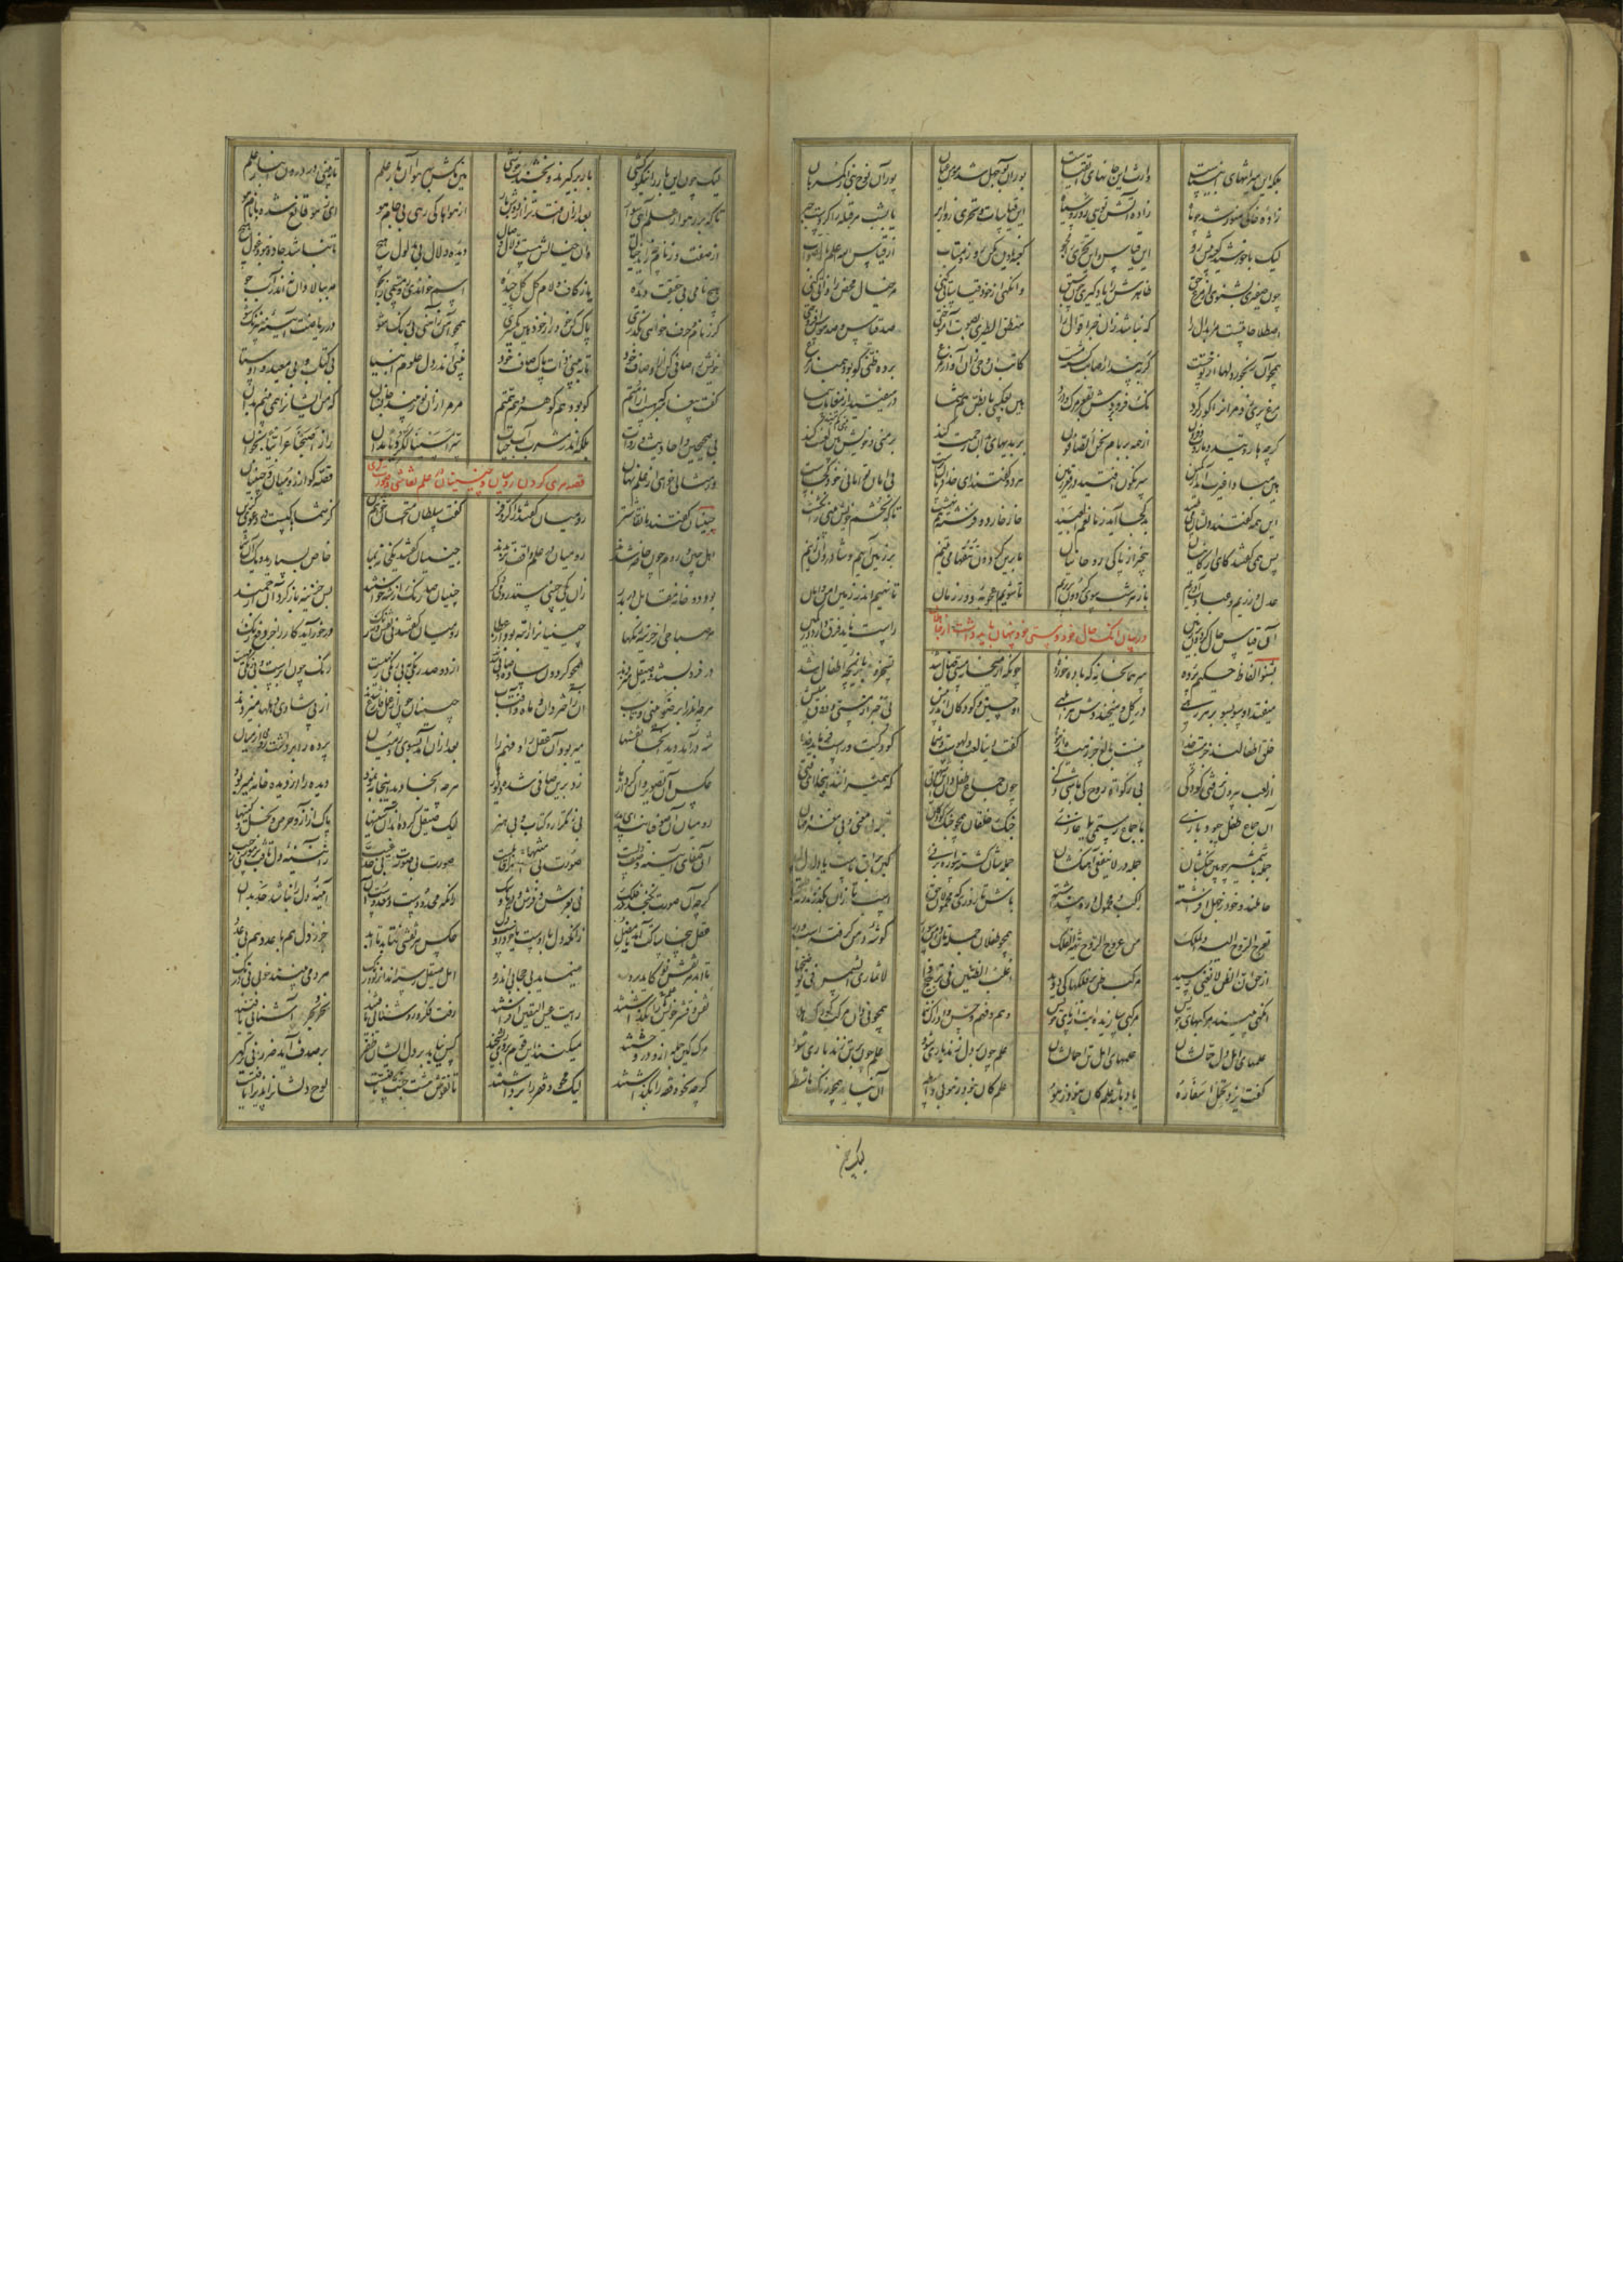 بلکه این میراثهای انبیاست وارث این جانهای اتقیاست پور آن بوجهل شد مومن عیان پور آن نوح نبی از گمرهان
زادهٔ خاکی منور شد چو ماه زادهٔ آتش تویی رو روسیاه این قیاسات و تحری روز ابر یا بشب مر قبله را کردست حبر
لیک با خورشید و کعبه پیش رو این قیاس و این تحری را مجو کعبه نادیده مکن رو زو متاب از قیاس الله اعلم بالصواب
چون صفیری بشنوی از مرغ حق ظاهرش را یاد گیری چون سبق وانگهی از خود قیاساتی کنی مر خیال محض را ذاتی کنی
اصطلاحاتیست مر ابدال را که نباشد زان خبر اقوال را منطق الطیری بصوت آموختی صد قیاس و صد هوس افروختی
همچو آن رنجور دلها از تو خست کر به پندار اصابت گشت مست کاتب آن وحی زان آواز مرغ برده ظنی کو بود همباز مرغ
مرغ پری زد مر او را کور کرد نک فرو بردش بقعر مرگ و درد هین بعکسی یا بظنی هم شما در میفتید از مقامات سما
گرچه هاروتید و ماروت و فزون از همه بر بام نحن الصافون بر بدیهای بدان رحمت کنید بر منی و خویش بینی
هین مبادا غیرت آید از کمین سرنگون افتید در قعر زمین هر دو گفتند ای خدا فرمان تراست بی امان تو امانی خود کجاست
این همی گفتند و دلشان می طپید بد کجا آید ز ما نعم العبید خار خار دو فرشته هم نهشت تا که تخم خویش بینی را نکشت
پس همی گفتند کای ارکانیان بیخبر از پاکی روحانیان ما برین گردون تتقها می تنیم بر زمین آییم و شادروان زنیم
عدل ورزیم و عبادت آوریم باز هر شب سوی گردون بر پریم تا شویم اعجوبهٔ دور زمان تا نهیم اندر زمین امن و امان
آن قیاس حال گردون بر زمین راست ناید فرق دارد در کمین
در بیان آنک حال خود و مستی خود پنهان باید داشت از جاهلان
بشنو الفاظ حکیم پرده سر همانجا نه که باده خورده چونکه از میخانه مستی ضال شد تسخر و بازیچه اطفال شد
میفتد او سو بسو بر هر رهی در گل و میخنددش هر ابلهی او چنین و کودکان اندر پیش بی خبر از مستی و ذوق میش
خلق اطفالند جز مست خدا نیست بالغ جز رهیده از هوا گفت دنیا لعب و لهوست و شما کودکیت و راست فرماید خدا
از لعب بیرون نرفتی کودکی بی ذکات روح کی باشی ذکی چون جماع طفل دان این شهوتی که همی رانند اینجا ای فتی
آن جماع طفل چبود بازیی با جماع رستمی و غازیی جنگ خلقان همچو جنگ کودکان جمله بی معنی و بی مغز و مهان
جمله با شمشیر چوبین جنگشان جمله در لاینفعی آهنگشان جمله شان گشته سواره بر نیی کین براق ماست یا دلدل پیی
حاملند و خود ز جهل افراشته راکب محمول ره پنداشته باش تا روزی که محمولان حق اسپ تازان بگذرند از نه طبق
تعرج الروح الیه والملک من عروج الروح یهتز الفلک همچو طفلان جمله تان دامن سوار گوشه دامن گرفته اسپ وار
از حق ان الظن لا یغنی رسید مرکب ظن بر فلکها کی دوید اغلب الظنین فی ترجیح ذا لا تماری الشمس فی توضیحها
آنگهی بینند مرکبهای خویش مرکبی سازیده اند از پای خویش وهم و فهم و حس و ادراک شما همچو نی دان مرکب کودک هلا
علمهای اهل دل حمالشان علمهای اهل تن احمالشان علم چون بر دل زند یاری شود علم چون بر تن زند باری شود
گفت ایزد یحمل اسفاره بار باشد علم کان نبود ز هو علم کان نبود ز هو بی واسطه آن نپاید همچو رنگ ماشطه
لیک چون
لیک چون این بار را نیکو کشی بار برگیرند و بخشندت خوشی هین مکش بهر هوا آن بار علم تا ببینی در درون انبار علم
تا که بر رهوار علم آیی سوار بعد از آن افتد ترا از دوش بار از هواها کی رهی بی جام هو ای ز هو قانع شده با نام هو
از صفت وز نام چه زاید خیال وان خیالش هست دلال وصال دیده دلال بی مدلول هیچ تا نباشد جاده نبود غول هیچ
هیچ نامی بی حقیقت دیده یا ز گاف و لام گل گل چیده اسم خواندی رو مسمی را بجو مه ببالا دان نه اندر آب جو
گر ز نام و حرف خواهی بگذری پاک کن خود را ز خود هین یکسری همچو آهن ز آهنی بی رنگ شو در ریاضت آینه بی زنگ شو
خویش را صافی کن از اوصاف خود تا ببینی ذات پاک صاف خود بینی اندر دل علوم انبیا بی کتاب و بی معید و اوستا
گفت پیغامبر که هست از امتم کو بود هم گوهر و هم همتم مر مرا زان نور بیند جانشان که من ایشان را همی بینم بدان
بی صحیحین و احادیث و روات بلکه اندر مشرب آب حیات سر امسینا لکردیا بدان راز اصبحنا عرابیا بخوان
قصه مری کردن رومیان و چینیان در علم نقاشی و صورتگری
ور مثالی خواهی از علم نهان قصه گو از رومیان و چینیان
چینیان گفتند ما نقاش تر رومیان گفتند ما را کر و فر گفت سلطان امتحان خواهم درین کز شماها کیست در دعوی گزین
اهل چین و روم چون حاضر شدند رومیان در علم واقف تر بدند چینیان گفتند یک خانه بما خاص بسپارید و یک آن شما
بود دو خانه مقابل در بدر زان یکی چینی ستد رومی دگر چینیان صد رنگ از شه خواستند پس خزینه باز کرد آن ارجمند
هر صباحی از خزینه رنگها چینیان را راتبه بود از عطا رومیان گفتند نی نقش و نه رنگ در خور آید کار را جز دفع زنگ
در فرو بستند و صیقل میزدند همچو گردون ساده و صافی شدند از دو صد رنگی به بی رنگی رهیست رنگ چون ابرست و بی رنگی مهیست
هرچه اندر ابر ضو بینی و تاب آن ز اختر دان و ماه و آفتاب چینیان چون از عمل فارغ شدند از پی شادی دهلها میزدند
شه در آمد دید آنجا نقشها میربود آن عقل را و فهم را بعد از آن آمد بسوی رومیان پرده را برداشت رومی از میان
عکس آن تصویر و آن کردارها زد برین صافی شده دیوارها هرچه آنجا دید اینجا به نمود دیده را از دیده خانه میربود
رومیان آن صوفیانند ای پدر بی ز تکرار و کتاب و بی هنر لیک صیقل کرده اند آن سینها پاک از آز و حرص و بخل و کینها
آن صفای آینه وصف دلست صورت بی منتها را قابلست صورت بی صورت بی حد غیب ز آینه دل تافت بر موسی ز جیب
گرچه آن صورت نگنجد در فلک نی بعرش و فرش و دریا و سمک زانکه محدودست و معدودست آن آینه دل را نباشد حد بدان
عقل اینجا ساکت آمد یا مضل زانکه دل با اوست یا خود اوست دل عکس هر نقشی نتابد تا ابد جز ز دل هم با عدد هم بی عدد
تا ابد هر نقش نو کاید برو مینماید بی حجابی اندرو اهل صیقل رسته اند از بو و رنگ هر دمی بینند خوبی بی درنگ
نقش و قشر علم را بگذاشتند رایت عین الیقین افراشتند رفت فکر و روشنائی یافتند نحر و بحر آشنائی یافتند
مرگ کین جمله ازو در وحشتند میکنند این قوم بر وی ریشخند کس نیابد بر دل ایشان ظفر بر صدف آید ضرر نی بر گهر
گرچه نحو و فقه را بگذاشتند لیک محو و فقر را برداشتند تا نقوش هشت جنت تافتست لوح دلشان را پذیرا یافتست